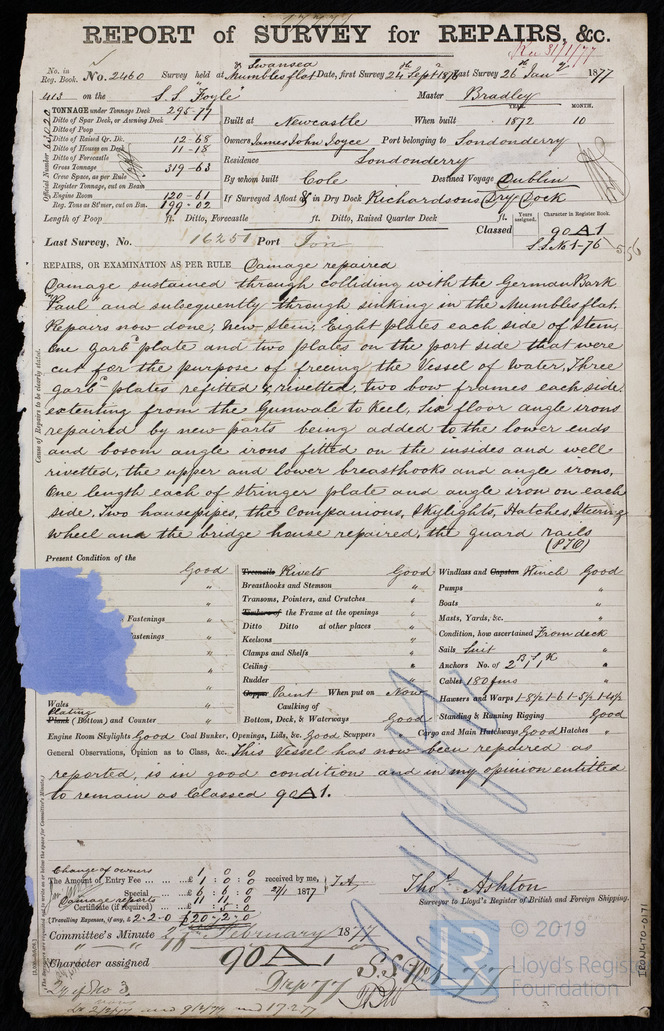 REPORT of SURVEY for REPAIRS, &c.
Rec 31/1/77
No. in Reg. Book. No. 2460 Survey held at Swansea & Mumbles flat Date, first Survey 24th Sept 1876 Last Survey 26th Jany 1877
413 on the S.S. "Foyle" Master Bradley
TONNAGE under Tonnage Deck 295-77
Ditto of Spar Deck, or Awning Deck
Ditto of Poop
Ditto of Raised Qr. Dk. 12-68
Ditto of Houses on Deck 11-18
Ditto of Forecastle
Gross Tonnage 319-63
Crew Space, as per Rule
Register Tonnage, cut on Beam
Engine Room 120-61
Reg. Tons as St'mer, cut on Bm. 199-02
Official Number 63020
YEAR. MONTH.
Built at Newcastle When built 1872 10
Owners James John Joyce Port belonging to Londonderry
Residence Londonderry
By whom built Cole Destined Voyage Dublin
If Surveyed Afloat or in Dry Dock Richardsons Dry Dock
Length of Poop ft. Ditto, Forecastle ft. Ditto, Raised Quarter Deck ft.
Years assigned. Character in Register Book.
Classed 90A1
S.S. No 1-76
Last Survey, No. 16251 Port Lon
REPAIRS, OR EXAMINATION AS PER RULE Damage repaired
Cause of Repairs to be clearly stated.
Damage sustained through colliding with the German Bark
"Paul" and subsequently through sinking in the Mumbles flat.
Repairs now done, New Stem, Eight plates each side of Stem,
One garbd plate and two plates on the port side that were
cut for the purpose of freeing the Vessel of Water, Three
garbd plates refitted & rivetted, two bow frames each side
extenting from the Gunwale to Keel, Six floor angle irons
repaired by new parts being added to the lower ends
and bosom angle irons fitted on the insides and well
rivetted, the upper and lower breasthooks and angle irons,
One length each of stringer plate and angle iron on each
side, Two hausepipes, the Companions, Skylights, Hatches, Steering
wheel and the bridge house repaired, the guard rails
(PTO)
Present Condition of the
Good
"
"
"
Fastenings "
Fastenings "
"
"
"
Wales "
Plating
Plank (Bottom) and Counter "
Treenails Rivets Good
Breasthooks and Stemson "
Transoms, Pointers, and Crutches "
Timbers of the Frame at the openings "
Ditto Ditto at other places "
Keelsons "
Clamps and Shelfs "
Ceiling "
Rudder "
Copper Paint When put on Now
Caulking of
Bottom, Deck, & Waterways Good
Windlass and Capstan Winch Good
Pumps "
Boats "
Masts, Yards, &c. "
Condition, how ascertained From deck
Sails Suit "
Anchors No. of 2B, 1S, 1K "
Cables 180 fms "
Hawsers and Warps
Standing & Running Rigging Good
Engine Room Skylights Good Coal Bunker, Openings, Lids, &c. Good Scuppers " Cargo and Main Hatchways Good Hatches "
General Observations, Opinion as to Class, &c. This Vessel has now been repaired as
reported, is in good condition and in my opinion entitled
to remain as Classed 90A1.
Change of owners 1 0 0
The Amount of Entry Fee £ 1 : 0 : 0 received by me,
Special £ 6 : 6 : 0 27/1 1877
Damage reports 11 11 0
Certificate (if required) : 5 : 0
(Travelling Expenses, if any, £ 2-2-0) £20-2-0
Thos Ashton
Surveyor to Lloyd's Register of British and Foreign Shipping.
Committee's Minute 2nd February 1877
Character assigned 90A1
© 2019
Lloyd's Register
Foundation
IRON470-0171